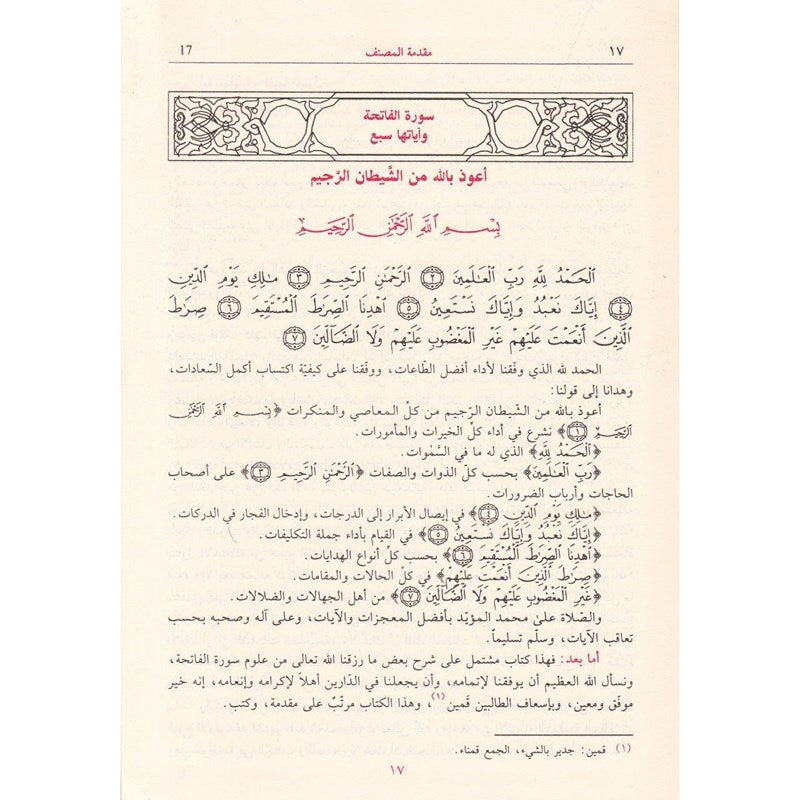 ١٧ مقدمة المصنف 17
سورة الفاتحة
وآياتها سبع
أعوذ بالله من الشَّيطان الرَّجيم
بِسْمِ اللَّهِ الرَّحْمَٰنِ الرَّحِيمِ
الْحَمْدُ لِلَّهِ رَبِّ الْعَالَمِينَ ﴿٢﴾ الرَّحْمَٰنِ الرَّحِيمِ ﴿٣﴾ مَالِكِ يَوْمِ الدِّينِ
﴿٤﴾ إِيَّاكَ نَعْبُدُ وَإِيَّاكَ نَسْتَعِينُ ﴿٥﴾ اهْدِنَا الصِّرَاطَ الْمُسْتَقِيمَ ﴿٦﴾ صِرَاطَ
الَّذِينَ أَنْعَمْتَ عَلَيْهِمْ غَيْرِ الْمَغْضُوبِ عَلَيْهِمْ وَلَا الضَّالِّينَ ﴿٧﴾
الحمد لله الذي وفّقنا لأداء أفضل الطّاعات، ووفّقنا على كيفيّة اكتساب أكمل السّعادات،
وهدانا إلى قولنا:
أعوذ بالله من الشّيطان الرّجيم من كلّ المعاصي والمنكرات ﴿بِسْمِ اللَّهِ الرَّحْمَٰنِ
الرَّحِيمِ ١﴾ نشرع في أداء كلّ الخيرات والمأمورات.
﴿الْحَمْدُ لِلَّهِ﴾ الذي له ما في السّموات.
﴿رَبِّ الْعَالَمِينَ﴾ بحسب كلّ الذوات والصفات ﴿الرَّحْمَٰنِ الرَّحِيمِ ٣﴾ على أصحاب
الحاجات وأرباب الضرورات.
﴿مَالِكِ يَوْمِ الدِّينِ ٤﴾ في إيصال الأبرار إلى الدرجات، وإدخال الفجار في الدركات.
﴿إِيَّاكَ نَعْبُدُ وَإِيَّاكَ نَسْتَعِينُ ٥﴾ في القيام بأداء جملة التكليفات.
﴿اهْدِنَا الصِّرَاطَ الْمُسْتَقِيمَ ٦﴾ بحسب كلّ أنواع الهدايات.
﴿صِرَاطَ الَّذِينَ أَنْعَمْتَ عَلَيْهِمْ﴾ في كلّ الحالات والمقامات.
﴿غَيْرِ الْمَغْضُوبِ عَلَيْهِمْ وَلَا الضَّالِّينَ ٧﴾ من أهل الجهالات والضلالات.
والصّلاة علىٰ محمد المؤيّد بأفضل المعجزات والآيات، وعلى آله وصحبه بحسب
تعاقب الآيات، وسلّم تسليماً.
أما بعد: فهذا كتاب مشتمل على شرح بعض ما رزقنا الله تعالى من علوم سورة الفاتحة،
ونسأل الله العظيم أن يوفقنا لإتمامه، وأن يجعلنا في الدّارين أهلاً لإكرامه وإنعامه، إنه خير
موفّق ومعين، وبإسعاف الطالبين قمين(١)، وهذا الكتاب مرتّبٌ على مقدمة، وكتب.
(١) قمين: جدير بالشيء، الجمع قمناء.
١٧